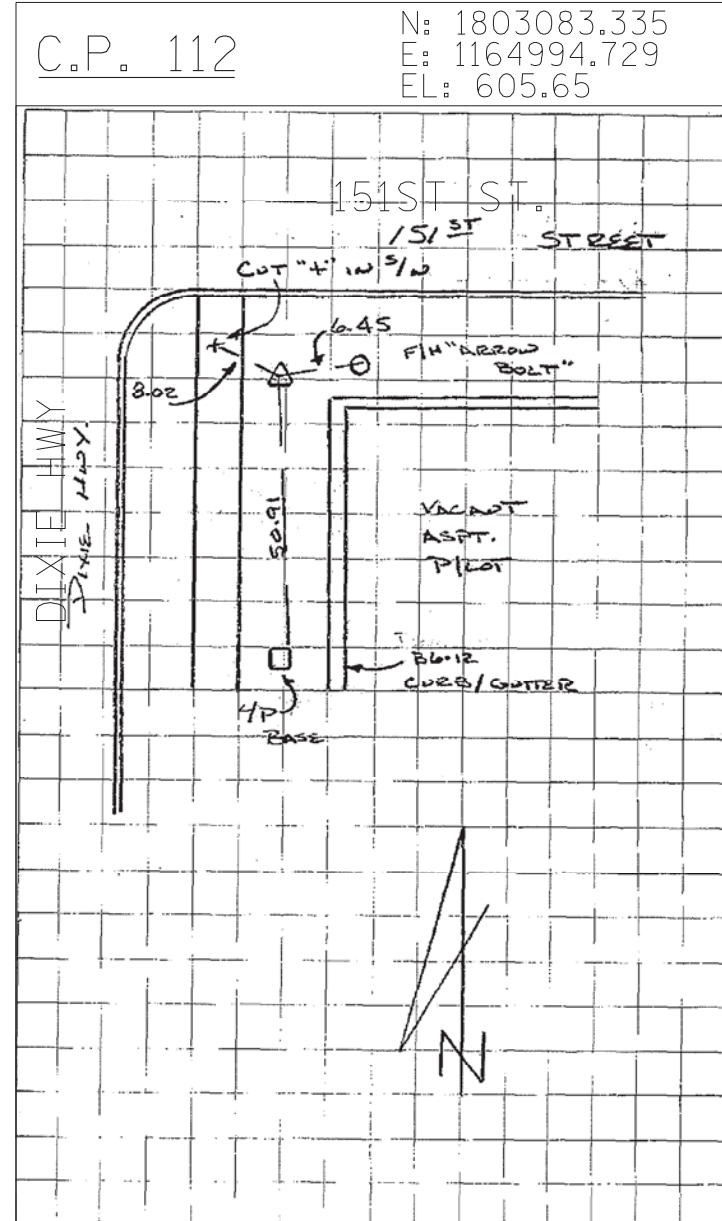 C.P. 112
N: 1803083.335
E: 1164994.729
EL: 605.65
151ST ST.
151 ST STREET
CUT "+" IN S/W
6.45
F/H "ARROW
BOLT"
8.02
DIXIE HWY
DIXIE HWY.
50.91
VACANT
ASPT.
P/LOT
B6.12
CURB/GUTTER
4/P
BASE
N